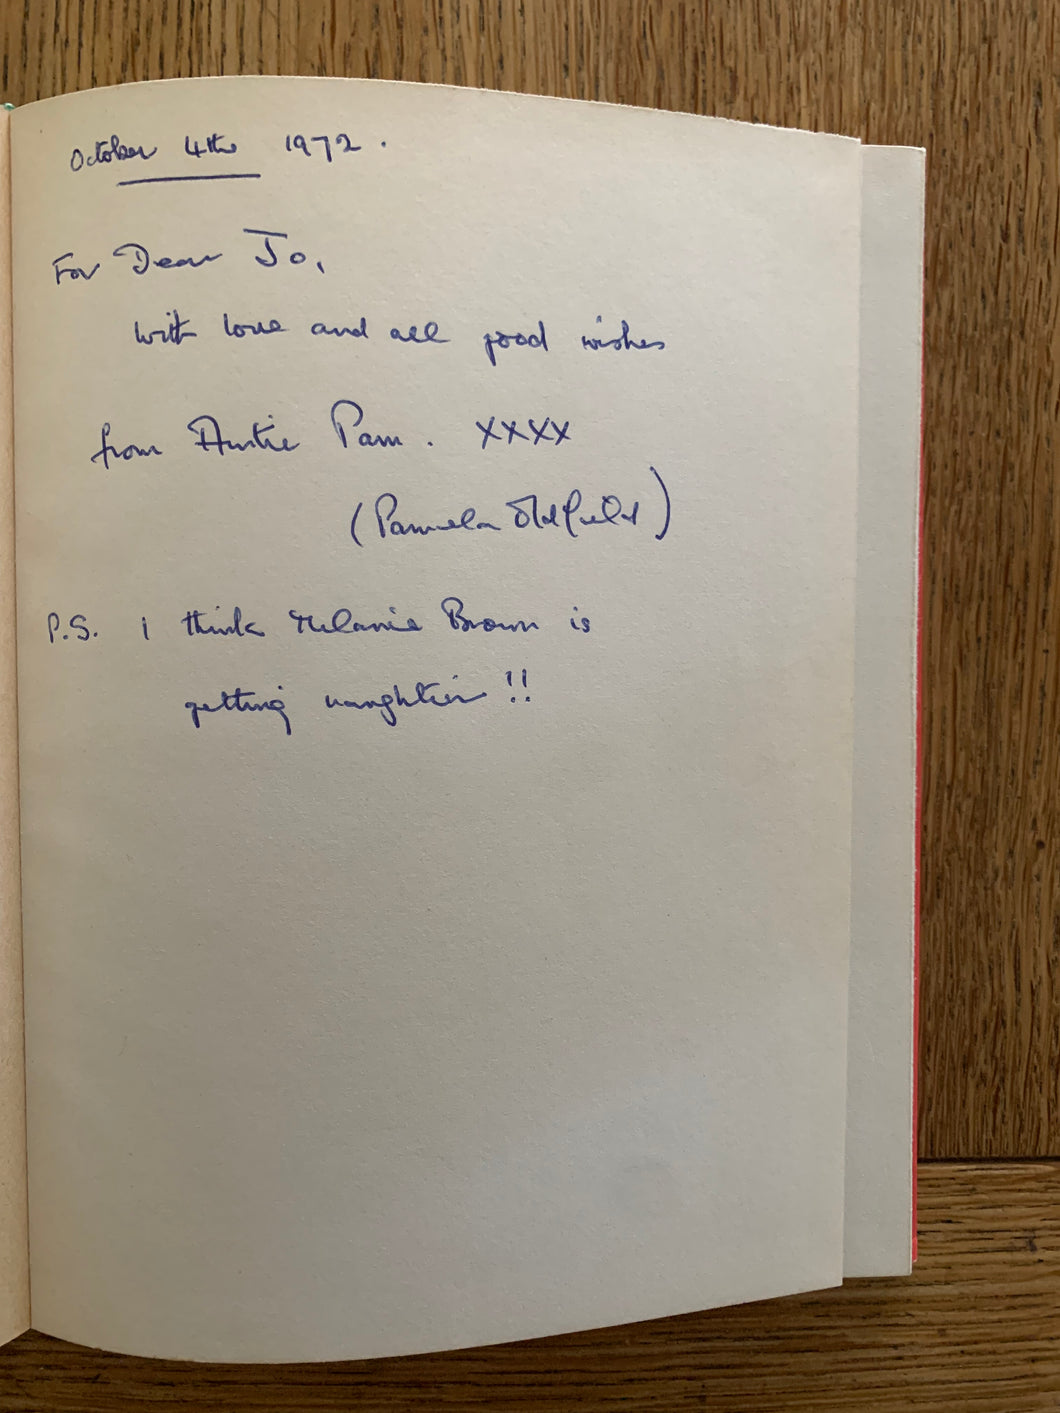 October 4th 1972.
For Dear Jo,
with love and all good wishes
from Auntie Pam. XXXX
(Pamela Oldfield)
P.S. I think Melanie Brown is
getting naughtier!!